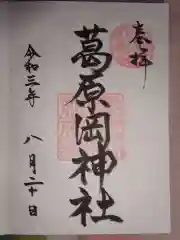 奉拝
葛原岡神社
令和三年
八月二十日